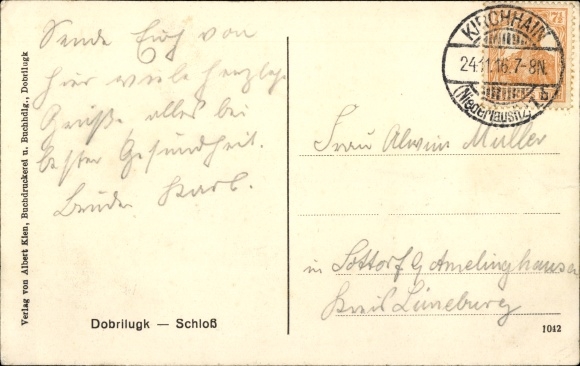 Sende Euch von
hier viele herzliche
Grüße, alles bei
bester Gesundheit.
Bruder Karl.
Dobrilugk — Schloß
Verlag von Albert Klen, Buchdruckerei u. Buchhdlg., Dobrilugk
7½
KIRCHHAIN
24.11.16.7-8N.
(Niederlausitz)
Frau Alwin Müller
in Sottorf b Amelinghausen
Kreis Lüneburg
1042